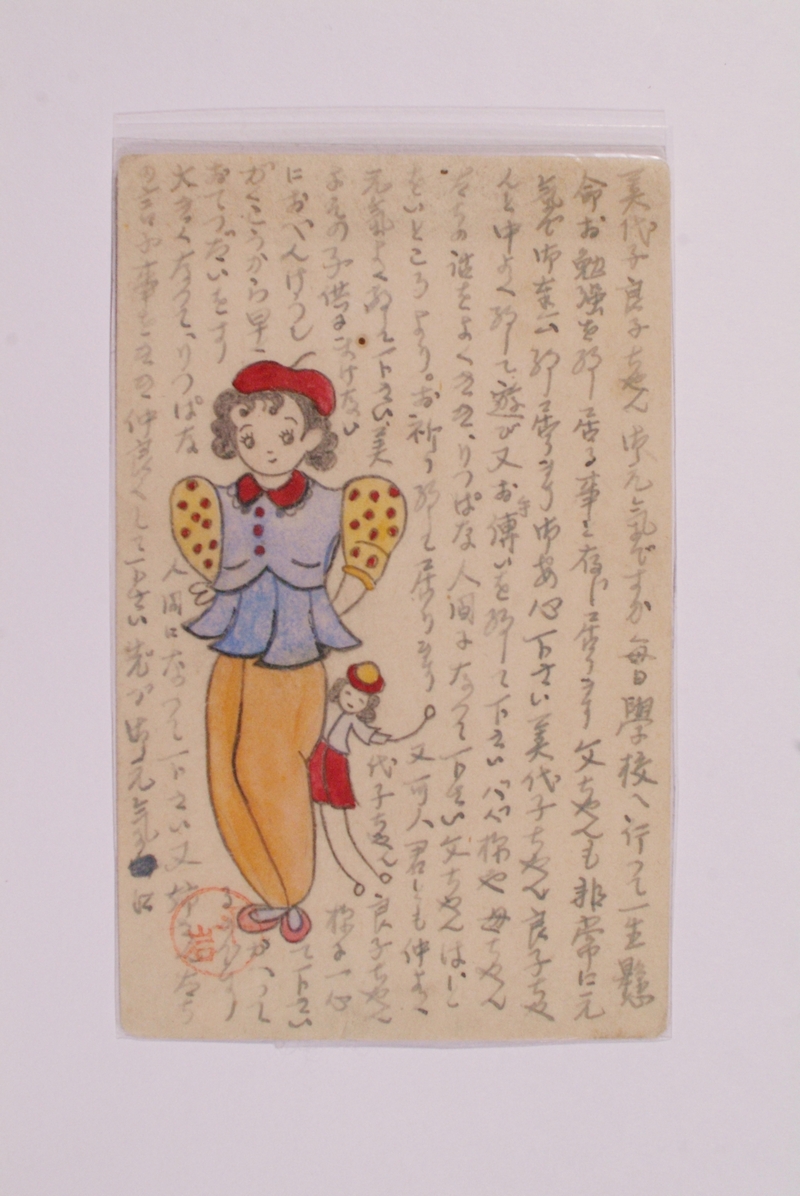 美代子良子ちゃん御元気ですか毎日學校へ行って一生懸
命お勉強を致し居る事と存じ居ります父ちゃんも非常に元
氣で御奉公致し居ります御安心下さい美代子ちゃん良子ちゃ
んと中よく致して遊び又お傳いを致して下さい 母ちゃん
たちの話をよくきき、りっぱな人間になって下さい父ちゃんはいと
をいところより。お祈り致して居ります 又 君とも仲よく
元気よく致して下さい、美代子ちゃん。良子ちゃん
よその子供にまけない 様に一心
におべんけうし て下さい
がくこうから早く かへって
おてつだいをす
大きくなって、りっぱな人間になって下さい又 たち
の言ふ事をきき仲良くして下さい 御元気で
岩